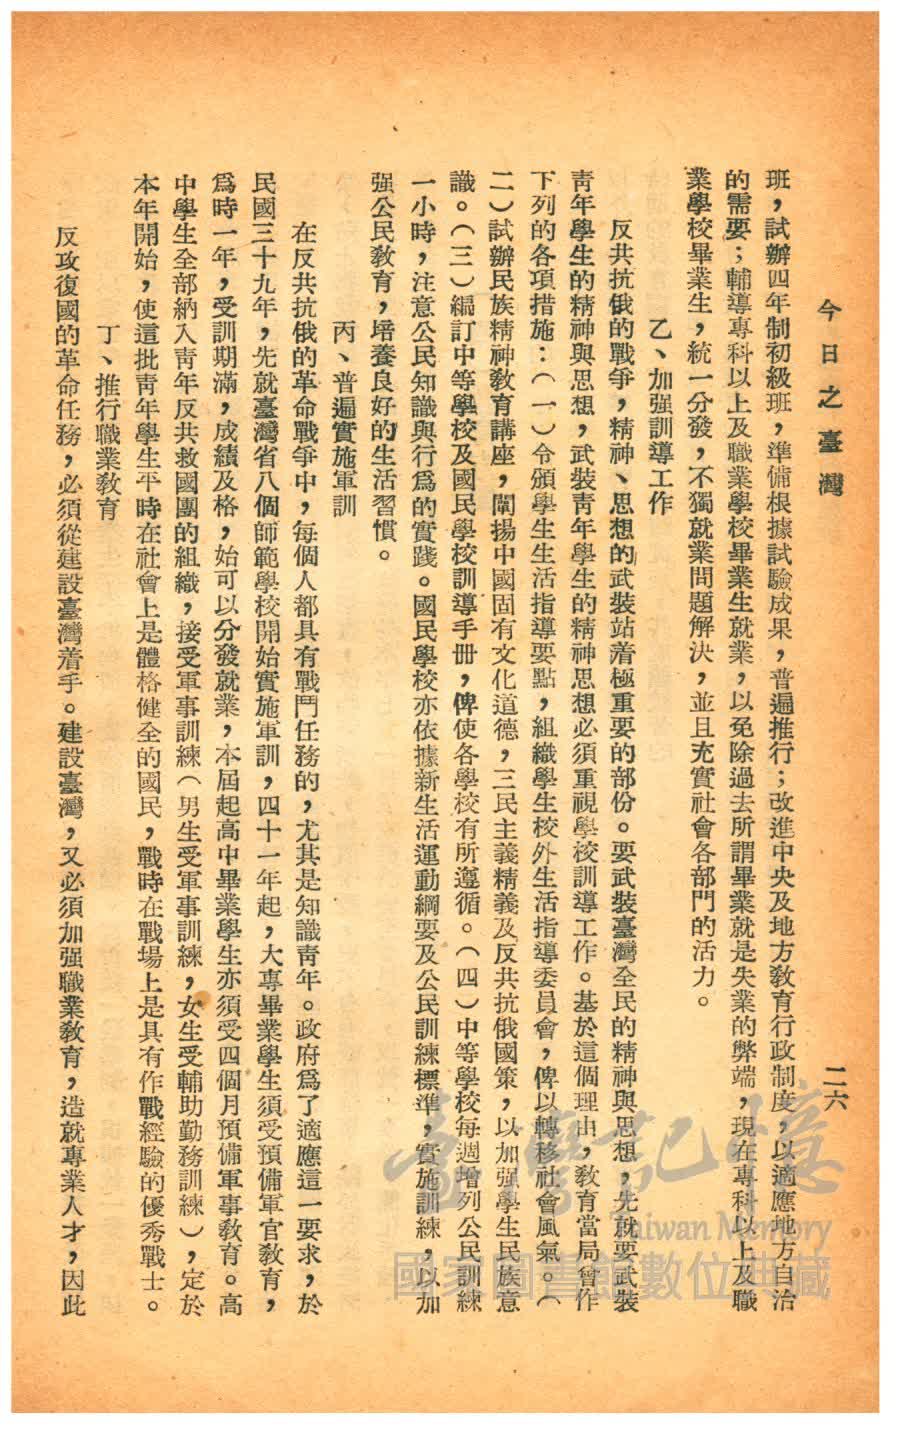 今日之臺灣
二六
班，試辦四年制初級班，準備根據試驗成果，普遍推行；改進中央及地方教育行政制度，以適應地方自治
的需要；輔導專科以上及職業學校畢業生就業，以免除過去所謂畢業就是失業的弊端，現在專科以上及職
業學校畢業生，統一分發，不獨就業問題解決，並且充實社會各部門的活力。
乙、加强訓導工作
反共抗俄的戰爭，精神、思想的武裝站着極重要的部份。要武裝臺灣全民的精神與思想，先就要武裝
靑年學生的精神與思想，武裝靑年學生的精神思想必須重視學校訓導工作。基於這個理由，敎育當局會作
下列的各項措施：（一）令頒學生生活指導要點，組織學生校外生活指導委員會，俾以轉移社會風氣。（
二）試辦民族精神敎育講座，闡揚中國固有文化道德，三民主義精義及反共抗俄國策，以加强學生民族意
識。（三）編訂中等學校及國民學校訓導手册，俾使各學校有所遵循。（四）中等學校每週增列公民訓練
一小時，注意公民知識與行爲的實踐。國民學校亦依據新生活運動綱要及公民訓練標準，實施訓練，以加
强公民敎育，培養良好的生活習慣。
丙、普遍實施軍訓
在反共抗俄的革命戰爭中，每個人都具有戰鬥任務的，尤其是知識靑年。政府爲了適應這一要求，於
民國三十九年，先就臺灣省八個師範學校開始實施軍訓，四十一年起，大專畢業學生須受預備軍官敎育，
爲時一年，受訓期滿，成績及格，始可以分發就業，本屆起高中畢業學生亦須受四個月預備軍事敎育。高
中學生全部納入靑年反共救國團的組織，接受軍事訓練（男生受軍事訓練，女生受輔助勤務訓練），定於
本年開始，使這批靑年學生平時在社會上是體格健全的國民，戰時在戰場上是具有作戰經驗的優秀戰士。
丁、推行職業敎育
反攻復國的革命任務，必須從建設臺灣着手。建設臺灣，又必須加强職業敎育，造就專業人才，因此
臺灣記憶
Taiwan Memory
國家圖書館數位典藏